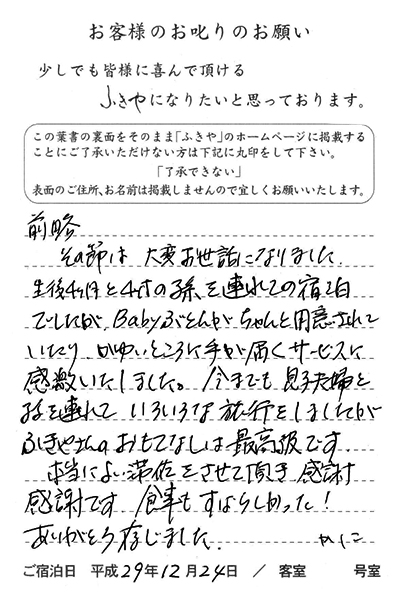 お客様のお叱りのお願い
少しでも皆様に喜んで頂ける
ふきやになりたいと思っております。
この葉書の裏面をそのまま「ふきや」のホームページに掲載する
ことにご了承いただけない方は下記に丸印をして下さい。
「了承できない」
表面のご住所、お名前は掲載しませんので宜しくお願いいたします。
前略
その節は 大変お世話になりました.
生後4ヶ月と4才の孫を連れての宿泊
でしたが、Babyぶとんがちゃんと用意されて
いたり、かゆいところに手が届くサービスに
感激いたしました。今までも息子夫婦と
孫を連れて いろいろな旅行をしましたが
ふきやさんのおもてなしは最高級です.
本当によい滞在をさせて頂き 感謝
感謝です 食事もすばらしかった!
ありがとう存じました. かしこ
ご宿泊日 平成29年12月24日 / 客室 号室